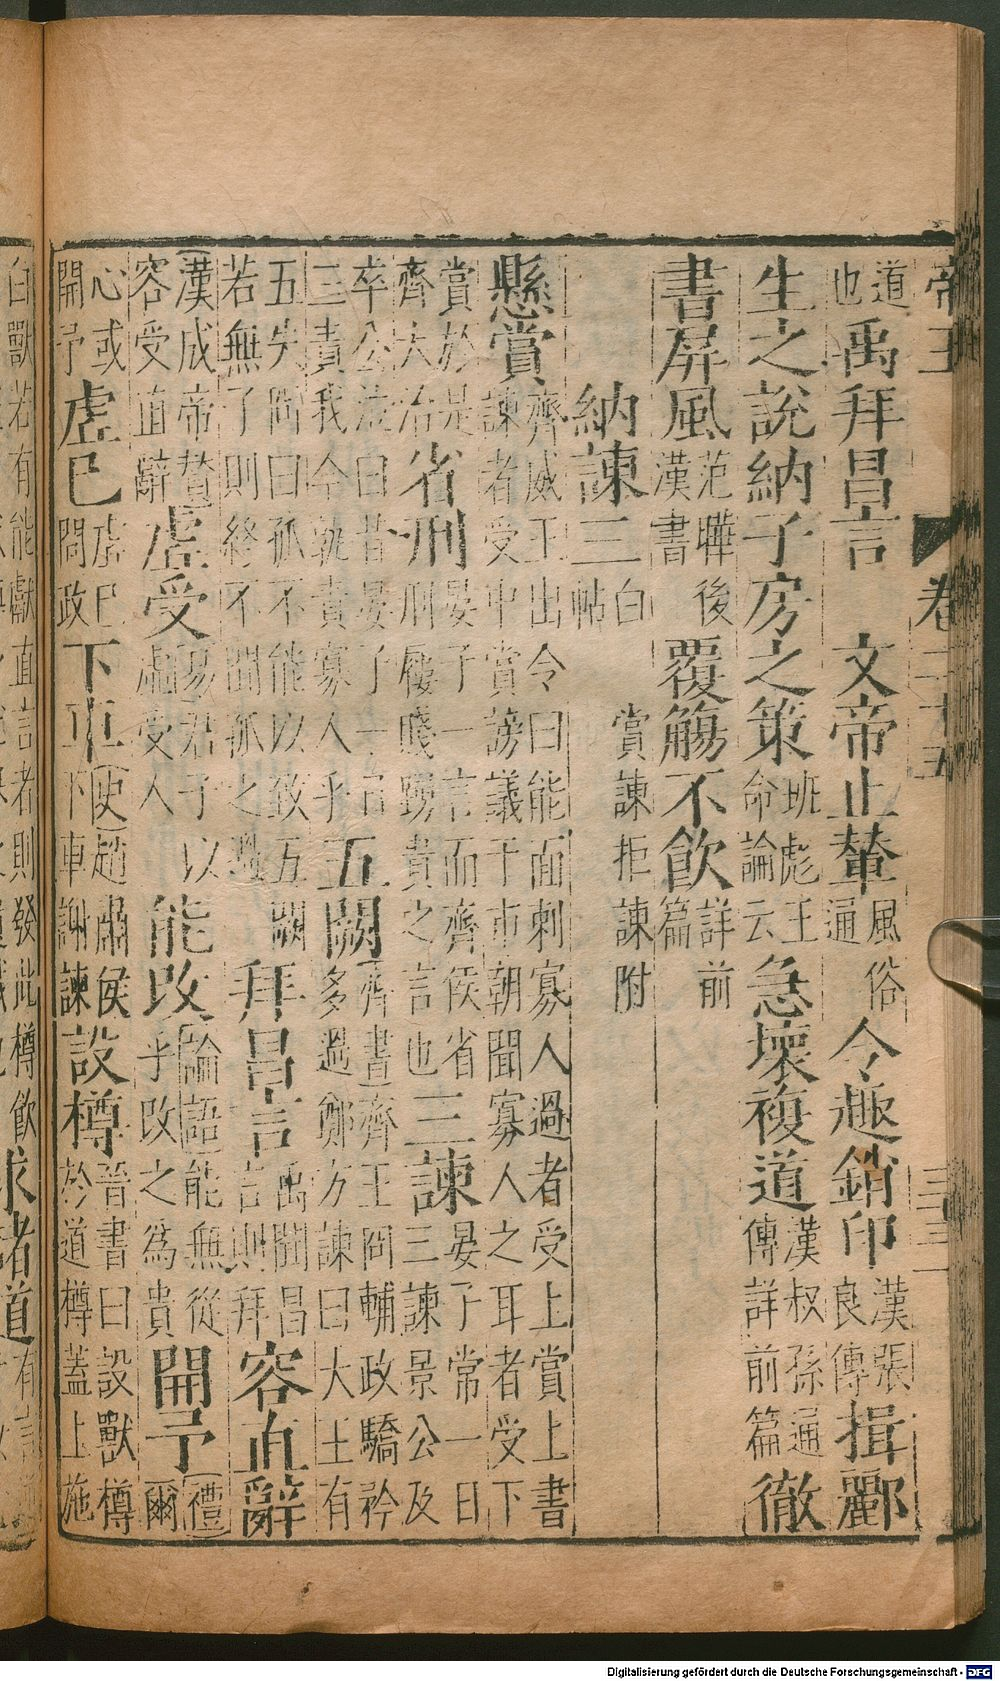 帝王 卷二十五
道也禹拜昌言 文帝止輦風俗通 令趣銷印漢張良傳揖酈
生之說納子房之策班彪王命論云急壞複道漢叔孫通傳詳前篇徹
書屏風范曄後漢書 覆觴不飲詳前篇
納諫三白帖 賞諫拒諫附
懸賞齊威王出令曰能面刺寡人過者受上賞上書諫者受中賞謗議于市朝聞寡人之耳者受下
賞於是齊大治省刑晏子一言而齊侯省刑屨賤踴貴之言也三諫晏子常一日三諫景公及
卒公泣曰昔晏子一日三責我今孰責寡人乎五闕齊書齊王冏輔政驕矜多過鄭方諫曰大王有
五失冏曰孤不能以致五闕若無子則終不聞孤之過拜昌言禹聞昌言則拜容直辭
漢成帝贊容受直辭虛受易君子以虛受人能改論語能無從乎改之為貴開予禮爾
心或開予虛已虛已問政下車史趙肅侯下車謝諫設樽晉書曰設獸樽於道樽蓋上施
白獸若有能獻直言者則發此樽飲求諸道有言
Digitalisierung gefördert durch die Deutsche Forschungsgemeinschaft - DFG